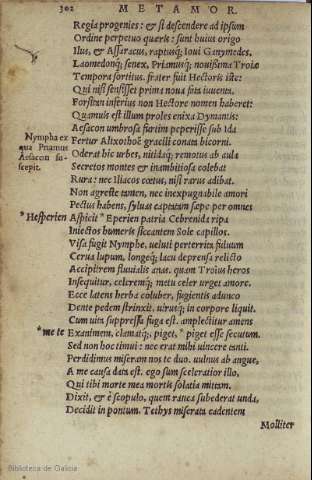 302 METAMOR.
Regia progenies: & si descendere ad ipsum
Ordine perpetuo quæris: sunt huius origo
Ilus, & Assaracus, raptusq; Ioui Ganymedes.
Laomedonq; senex, Priamusq; nouissima Troiæ
Tempora sortitus. frater fuit Hectoris iste:
Qui nisi sensisset prima noua fata iuuenta,
Forsitan inferius non Hectore nomen haberet:
Quamuis est illum proles enixa Dymantis.
Aesacon umbrosa furtim peperisse sub Ida
Nympha ex
qua Priamus
Aesacon su-
scepit.
Fertur Alixothoë gracili conata bicorni.
Oderat hic urbes, nitidaq; remotus ab aula
Secretos montes & inambitiosa colebat
Rura: nec Iliacos cœtus, nisi rarus adibat.
Non agreste tamen, nec inexpugnabile amori
Pectus habens, syluas captatam sæpe per omnes
*Hesperien Aspicit * Eperien patria Cebrenida ripa
Iniectos humeris siccantem Sole capillos.
Visa fugit Nymphe. ueluti perterrita fuluum
Cerua lupum, longeq; lacu deprensa relicto
Accipitrem fluuialis anas. quam Troius heros
Insequitur, celeremq; metu celer urget amore.
Ecce latens herba coluber, fugientis adunco
Dente pedem strinxit. uirusq; in corpore liquit.
Cum uita suppressa fuga est. amplectitur amens
*me te Exanimem, clamatq;, piget, * piget esse secutum.
Sed non hoc timui: nec erat mihi uincere tanti.
Perdidimus miseram nos te duo. uulnus ab angue,
A me causa data est. ego sum sceleratior illo,
Qui tibi morte mea mortis solatia mittam.
Dixit, & è scopulo, quem rauca subederat unda,
Decidit in pontum. Tethys miserata cadentem
Molliter
Biblioteca de Galicia